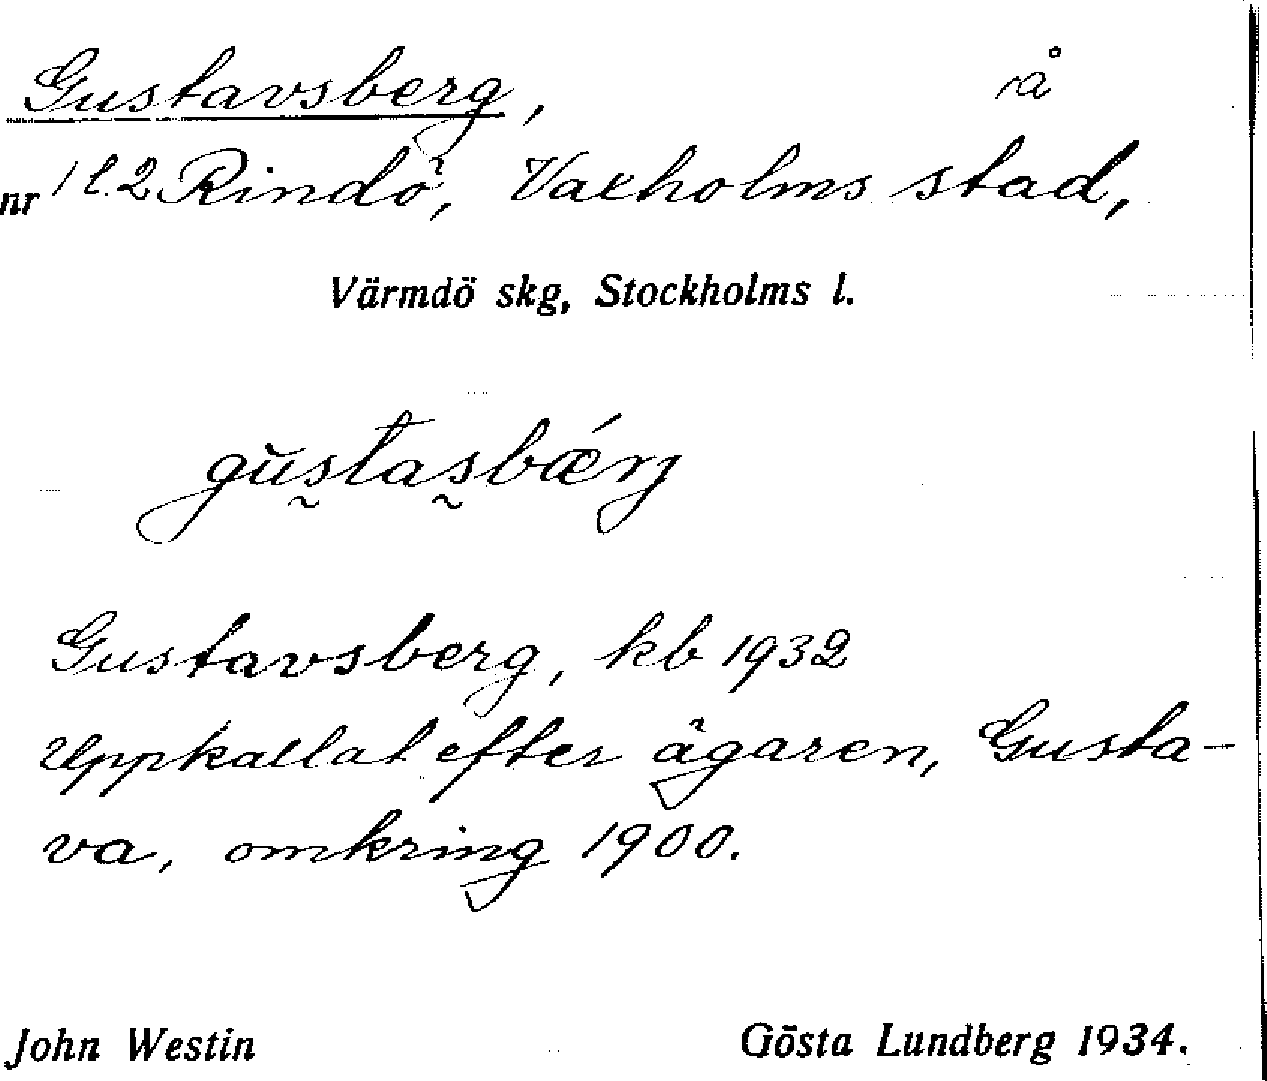 Gustavsberg, å
nr 1 l. 2 Rindö, Vaxholms stad,
Värmdö skg, Stockholms l.
gŭstasbǽrj
Gustavsberg, kb 1932
Uppkallat efter ägaren, Gusta-
va, omkring 1900.
John Westin Gösta Lundberg 1934.